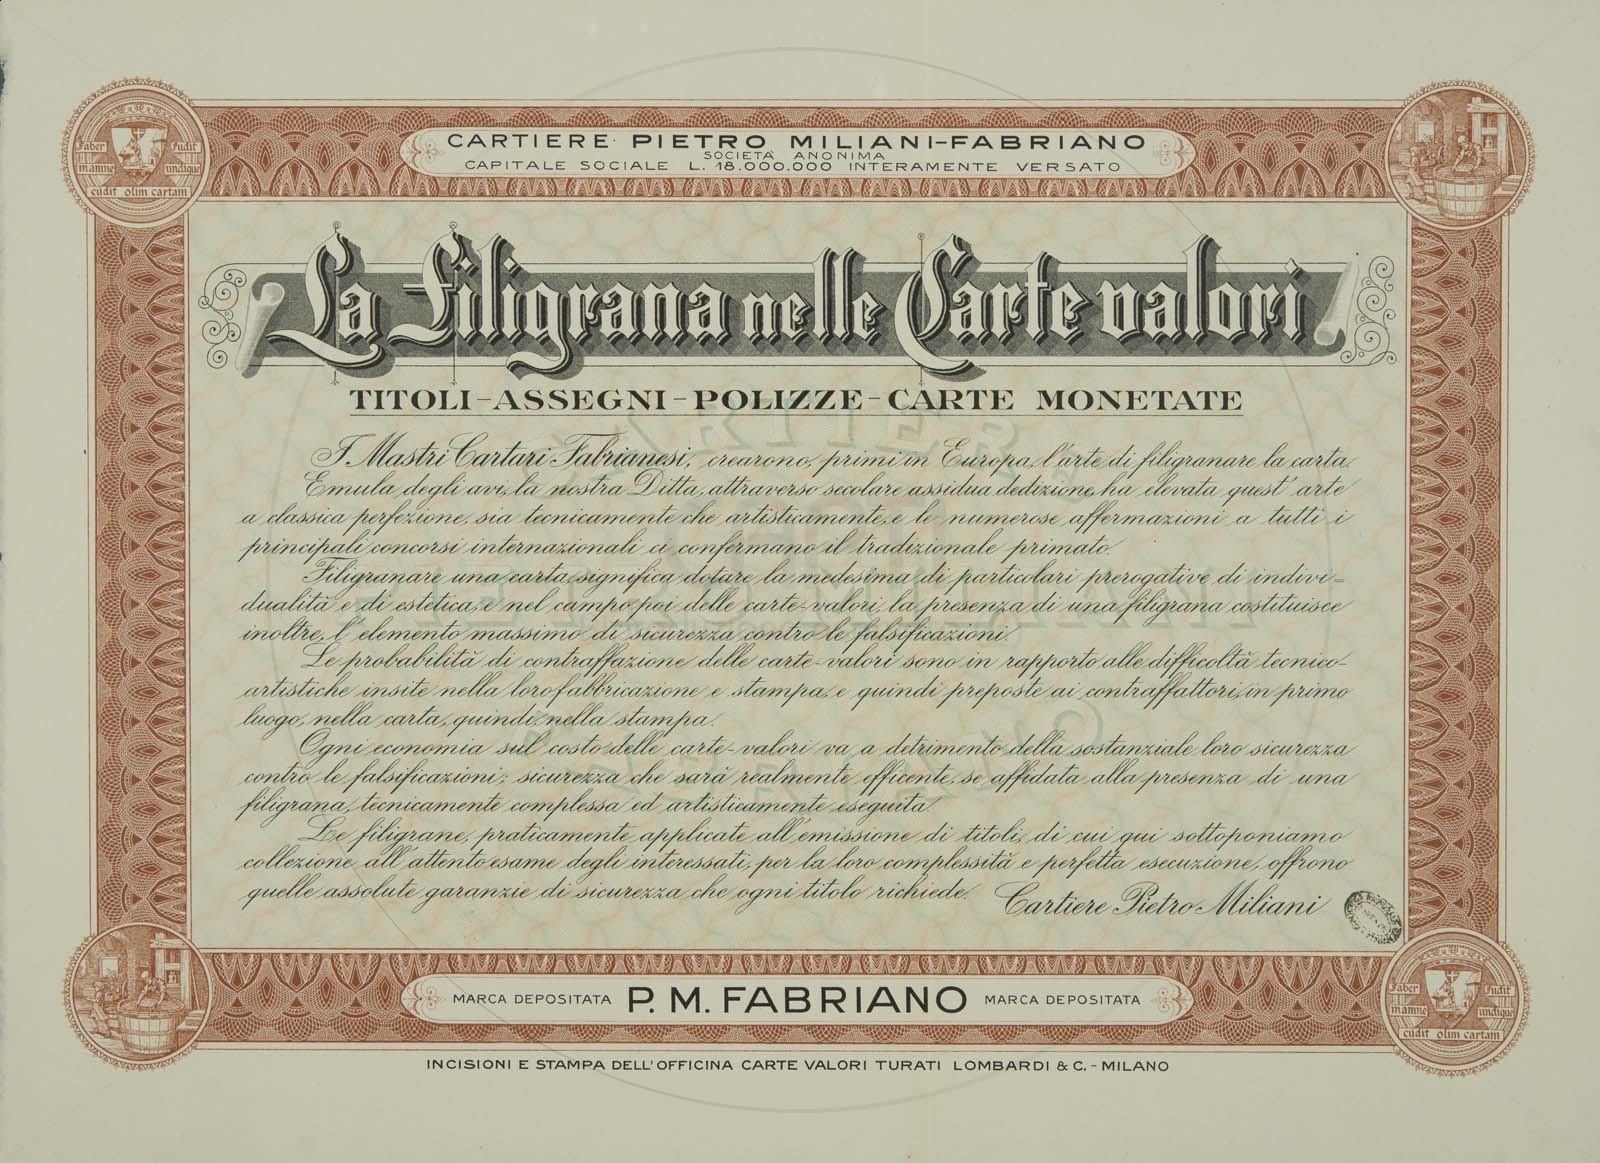 CARTIERE PIETRO MILIANI-FABRIANO
SOCIETÀ ANONIMA
CAPITALE SOCIALE L. 18.000.000 INTERAMENTE VERSATO
Faber in amne
cudit olim cartam
undique fudit
La Filigrana nelle Carte valori
TITOLI-ASSEGNI-POLIZZE-CARTE MONETATE
I Mastri Cartari Fabrianesi, crearono, primi in Europa, l'arte di filigranare la carta.
Emula degli avi, la nostra Ditta, attraverso secolare assidua dedizione, ha elevata quest' arte
a classica perfezione, sia tecnicamente che artisticamente, e le numerose affermazioni a tutti i
principali concorsi internazionali ci confermano il tradizionale primato.
Filigranare una carta, significa dotare la medesima di particolari prerogative di indivi-
dualità e di estetica, e nel campo, poi delle carte-valori, la presenza di una filigrana costituisce
inoltre, l' elemento massimo di sicurezza contro le falsificazioni.
Le probabilità di contraffazione delle carte-valori sono in rapporto alle difficoltà tecnico-
artistiche insite nella loro fabbricazione e stampa, e quindi preposte ai contraffattori, in primo
luogo, nella carta, quindi, nella stampa.
Ogni economia sul costo delle carte-valori va a detrimento della sostanziale loro sicurezza
contro le falsificazioni; sicurezza che sarà realmente efficente, se affidata alla presenza di una
filigrana, tecnicamente complessa ed artisticamente eseguita.
Le filigrane, praticamente applicate all'emissione di titoli, di cui qui sottoponiamo
collezione all'attento esame degli interessati, per la loro complessità e perfetta esecuzione, offrono
quelle assolute garanzie di sicurezza che ogni titolo richiede.
Cartiere Pietro Miliani
MARCA DEPOSITATA P. M. FABRIANO MARCA DEPOSITATA
Faber in amne
cudit olim cartam
undique fudit
INCISIONI E STAMPA DELL'OFFICINA CARTE VALORI TURATI LOMBARDI & C. - MILANO